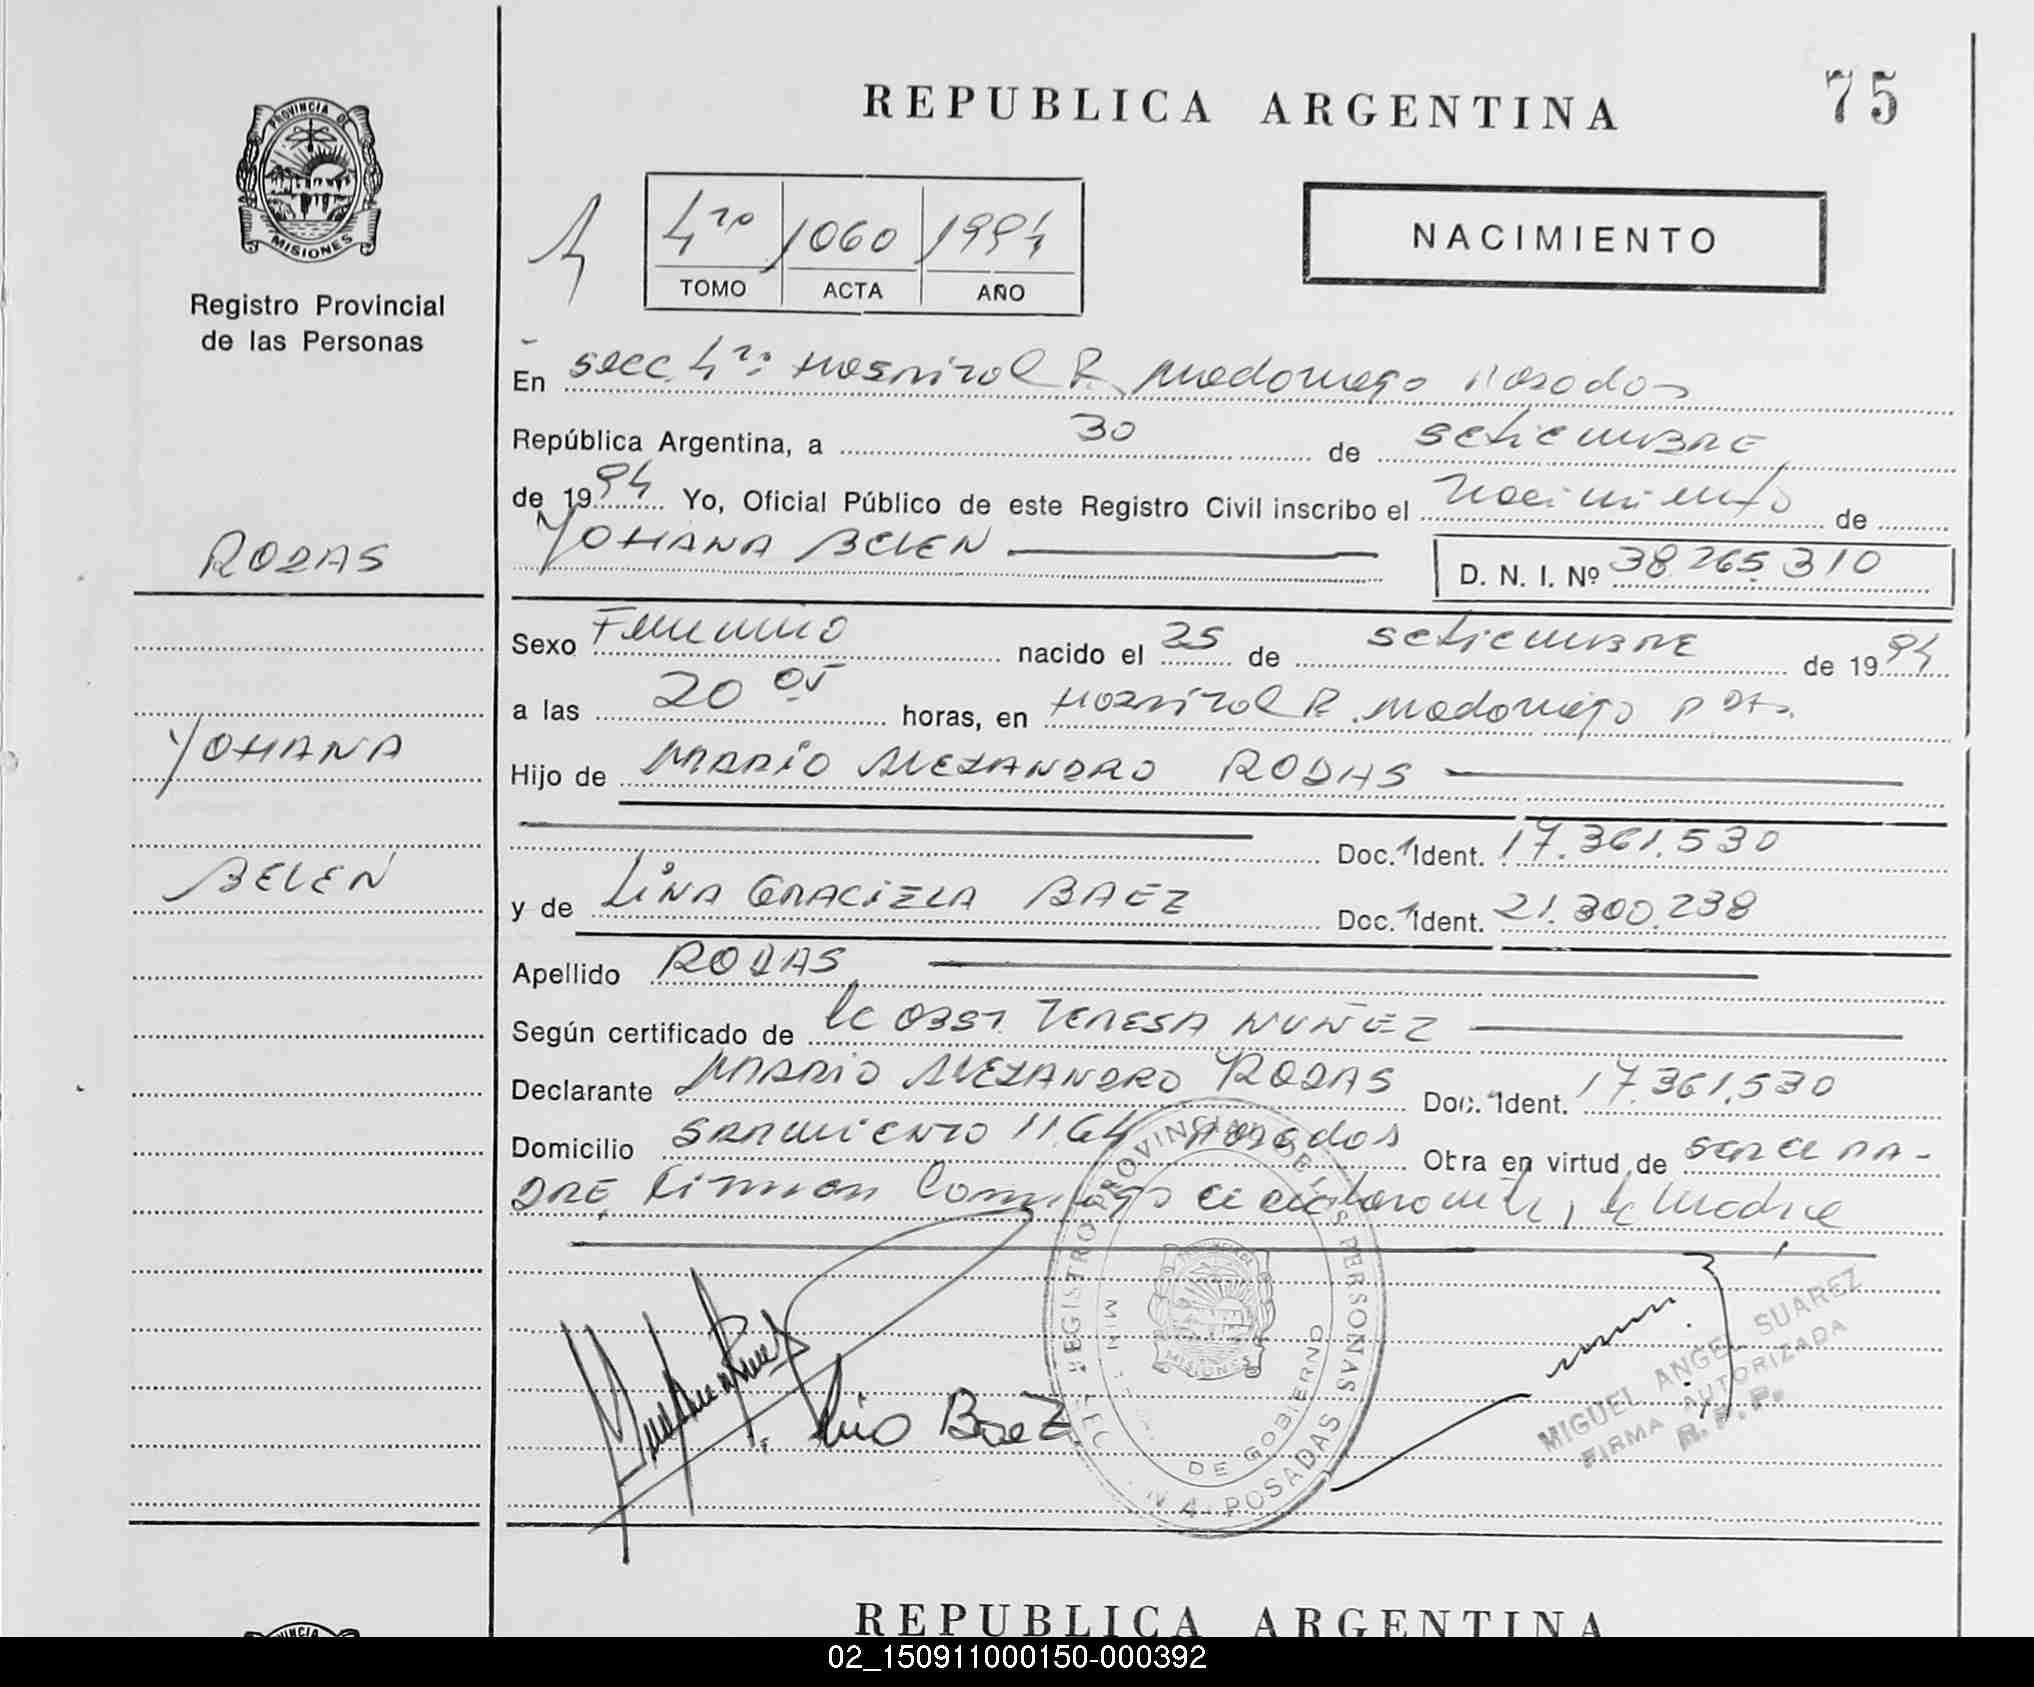 REPUBLICA ARGENTINA
75
PROVINCIA DE
MISIONES
Registro Provincial
de las Personas
4ro 1060 1994
TOMO ACTA AÑO
NACIMIENTO
En Secc. 4ta Hospital R. Madariaga Posadas
República Argentina, a 30 de setiembre
de 1994 Yo, Oficial Público de este Registro Civil inscribo el nacimiento de
YOHANA BELEN
D. N. I. Nº 38.265.310
RODAS
YOHANA
BELEN
Sexo Femenino nacido el 25 de setiembre de 1994
a las 20 05 horas, en Hospital R. Madariaga Pdas.
Hijo de MARIO ALEJANDRO RODAS
Doc. Ident. 17.361.530
y de LINA GRACIELA BAEZ Doc. Ident. 21.300.238
Apellido RODAS
Según certificado de la OBST. TERESA NUÑEZ
Declarante MARIO ALEJANDRO RODAS Doc. Ident. 17.361.530
Domicilio SARMIENTO 1164 Posadas Obra en virtud de ser el PA-
DRE, firman conmigo el declarante, la madre
Lina Baez
REGISTRO PROVINCIAL DE LAS PERSONAS
MISIONES
DE GOBIERNO
POSADAS
MIGUEL ANGEL SUAREZ
FIRMA AUTORIZADA
R.P.P.
REPUBLICA ARGENTINA
02_150911000150-000392